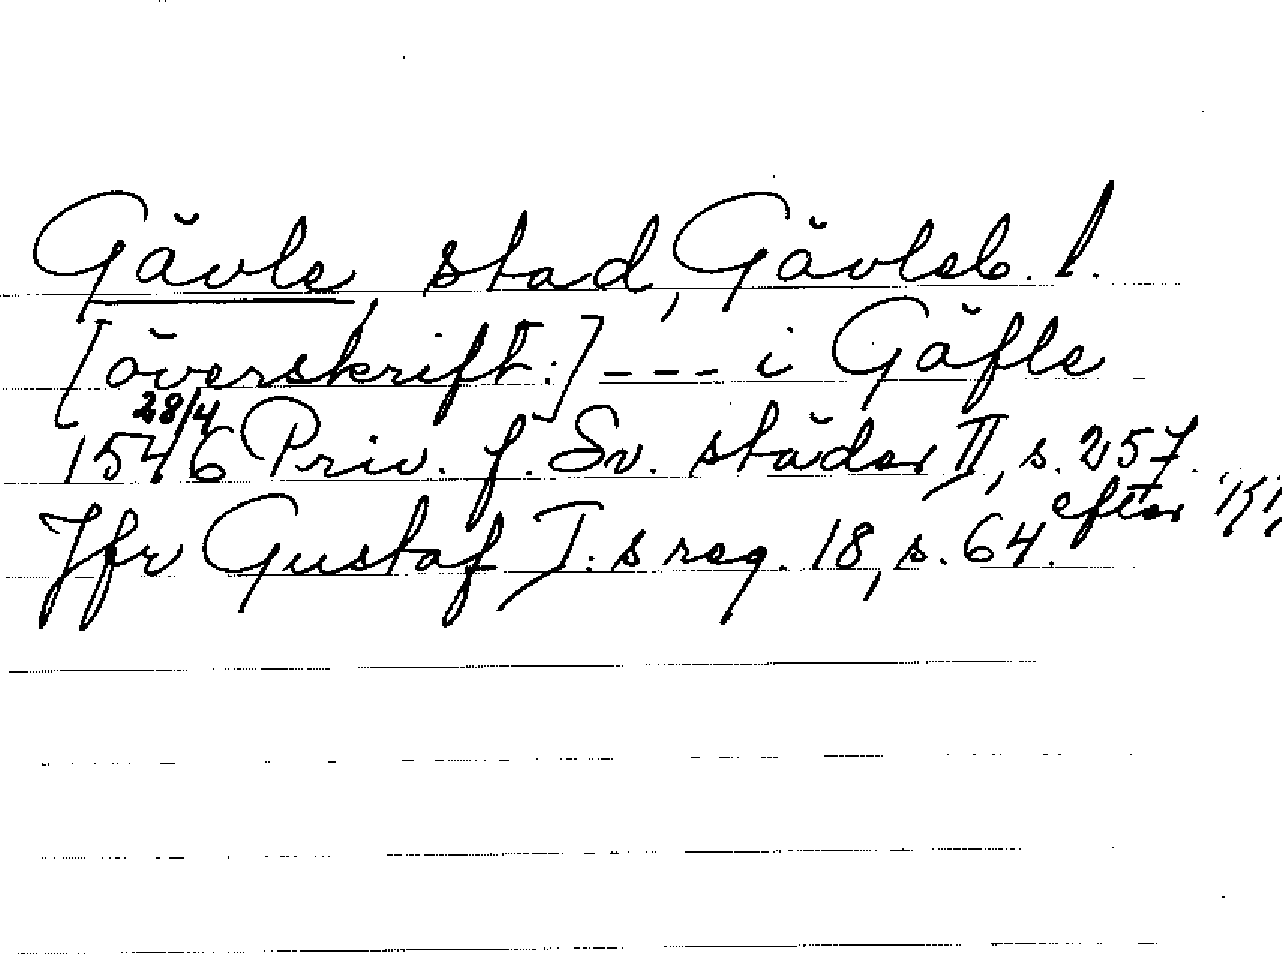 Gävle, stad, Gävleb. l.
[överskrift:] --- i Gäfle
28/4
1546 Priv. f. Sv. städer II, s. 257.
efter
Jfr Gustaf I:s reg. 18, s. 64.